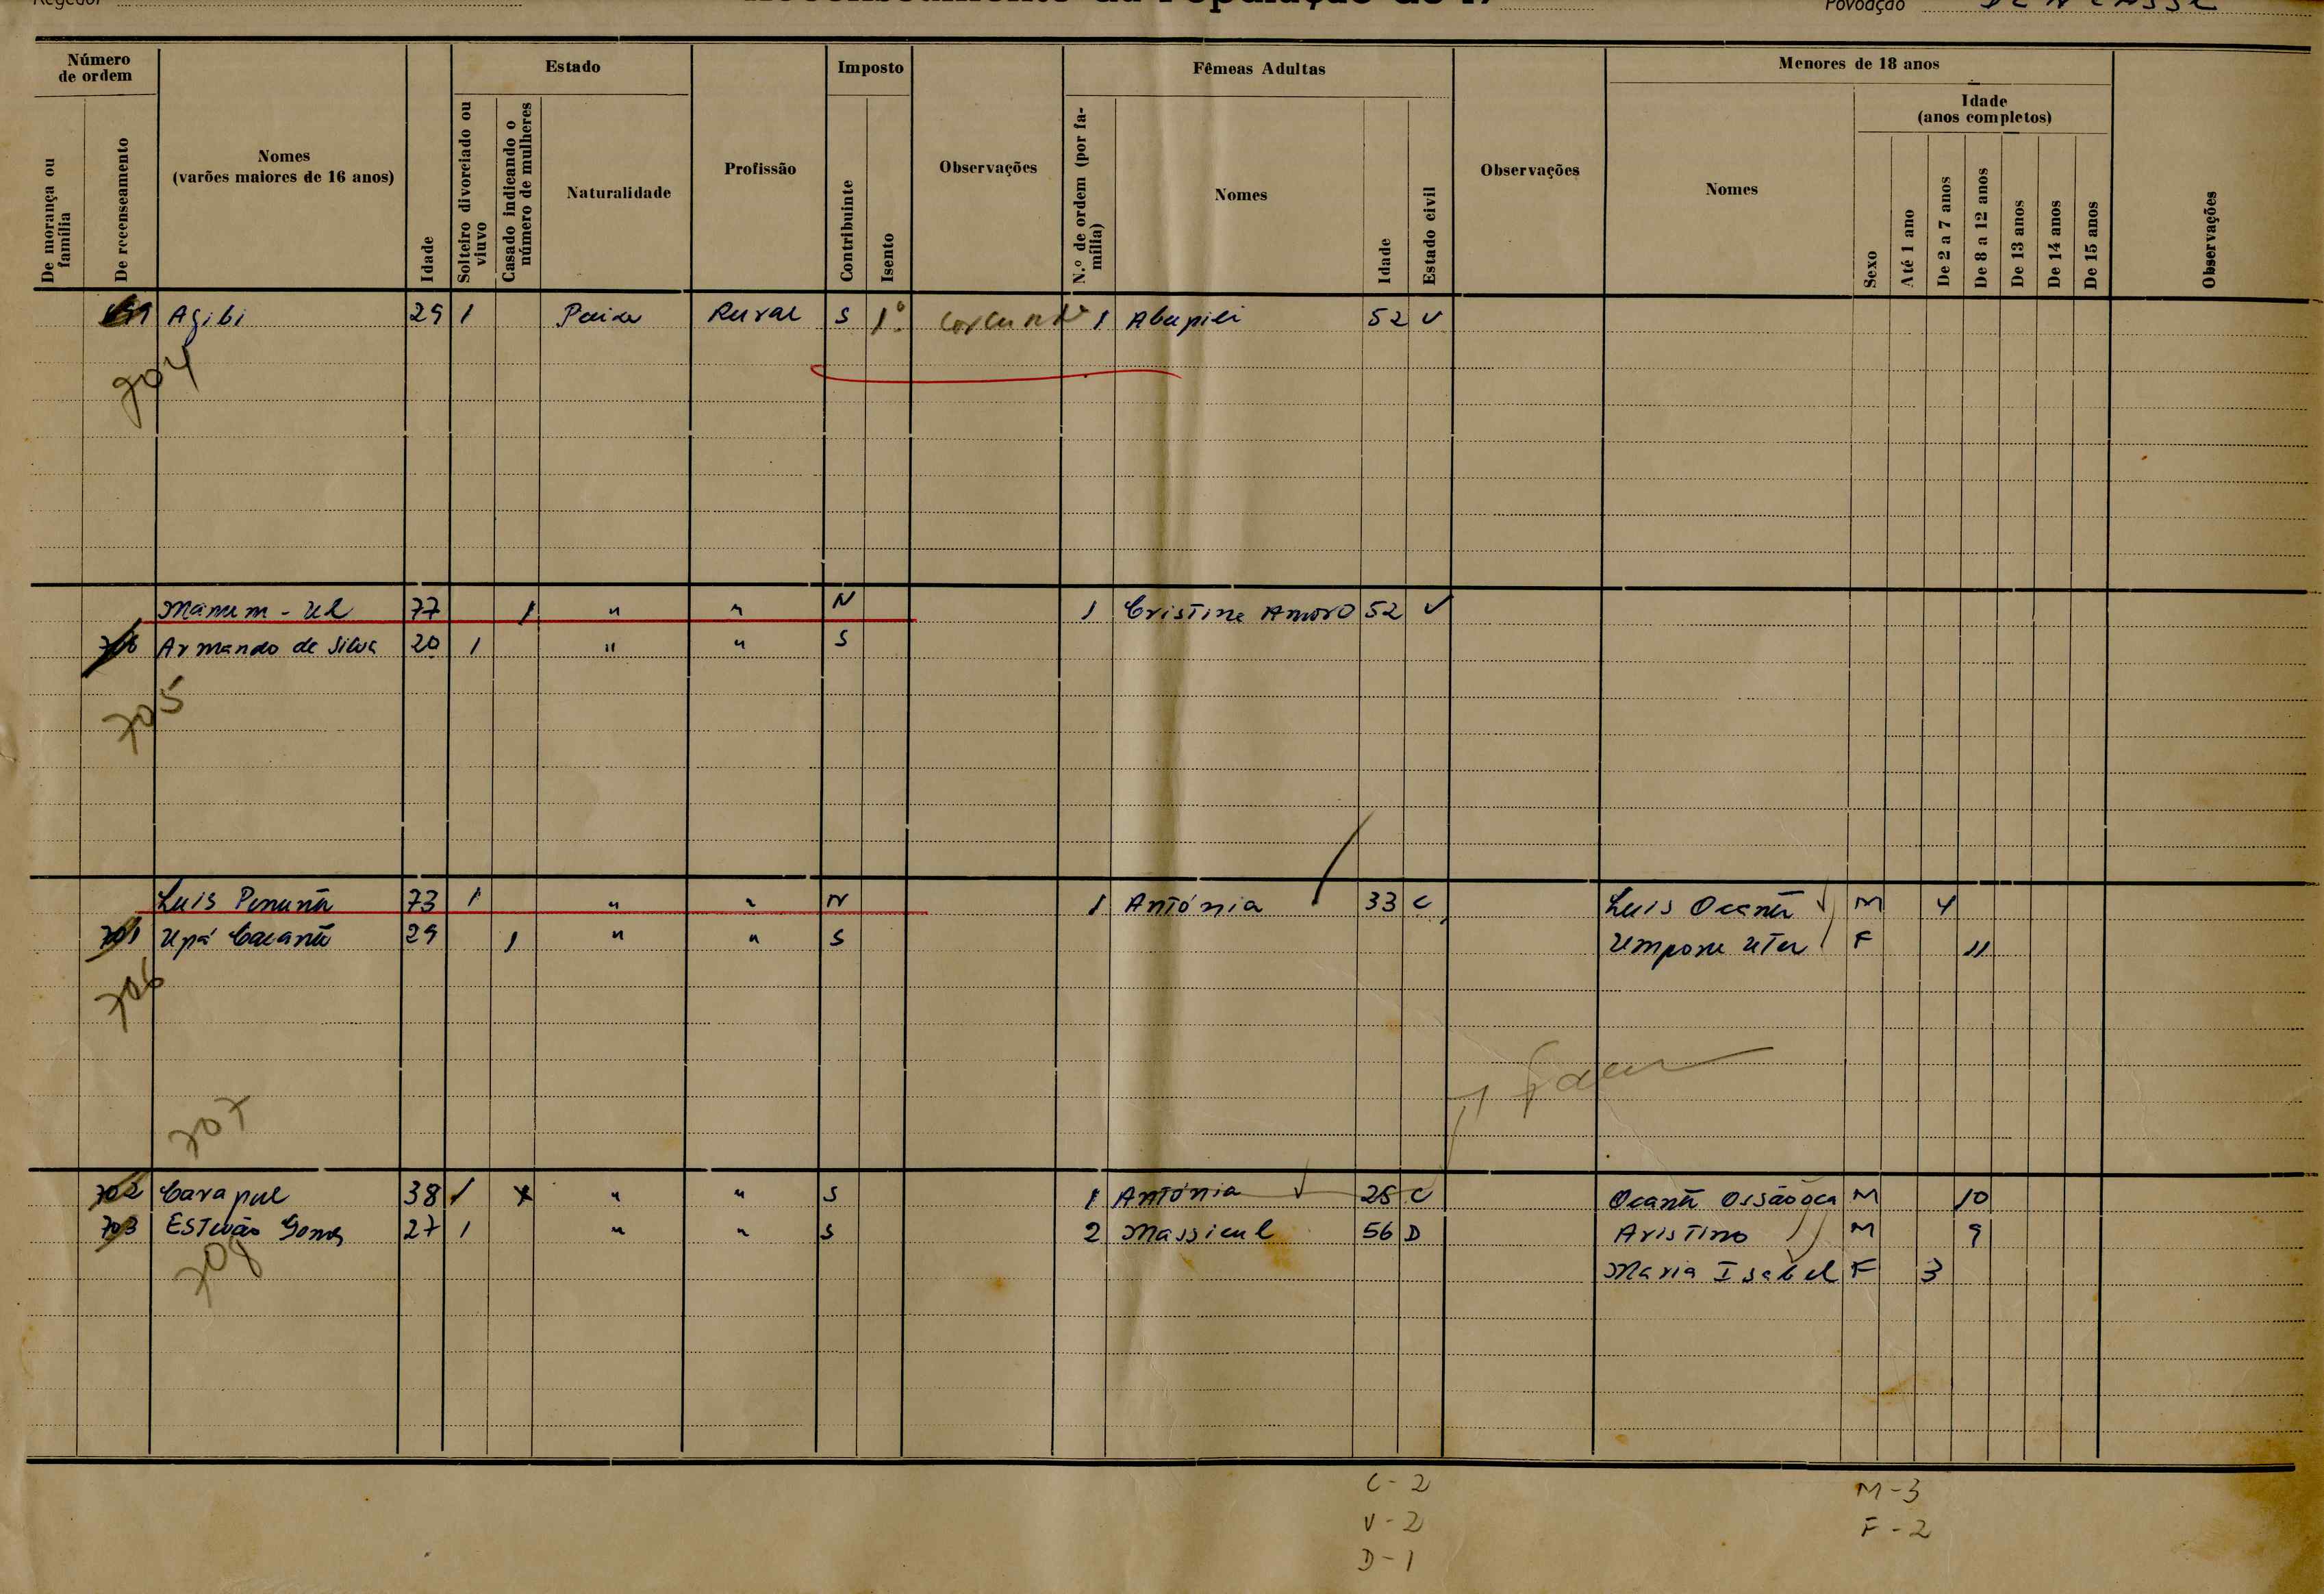 Regedor
Recenseamento da População de 19
Povoação
Número de ordem
Estado
Imposto
Fêmeas Adultas
Menores de 18 anos
De morança ou família
De recenseamento
Nomes
(varões maiores de 16 anos)
Idade
Solteiro divorciado ou viuvo
Casado indicando o número de mulheres
Naturalidade
Profissão
Contribuinte
Isento
Observações
N.º de ordem (por família)
Nomes
Idade
Estado civil
Observações
Nomes
Sexo
Idade
(anos completos)
Até 1 ano
De 2 a 7 anos
De 8 a 12 anos
De 13 anos
De 14 anos
De 15 anos
Observações
Agibi 29 1 Rural S 1º 1 52 V
704
Manum - Ul 77 1 " " N 1 Cristina 52 V
Armando de Silva 20 1 " " S
705
Luis 73 1 " " N 1 Antónia 33 C Luis Ocantĩ M 4
701 Upá 29 1 " " S F 11
706
707
702 Carapul 38 1 " " S 1 Antónia C M 10
703 Estevão Gomes 27 1 " " S 2 Massicul 56 D Aristino M 9
708 Maria Isabel F 3
C - 2 M - 3
V - 2 F - 2
D - 1